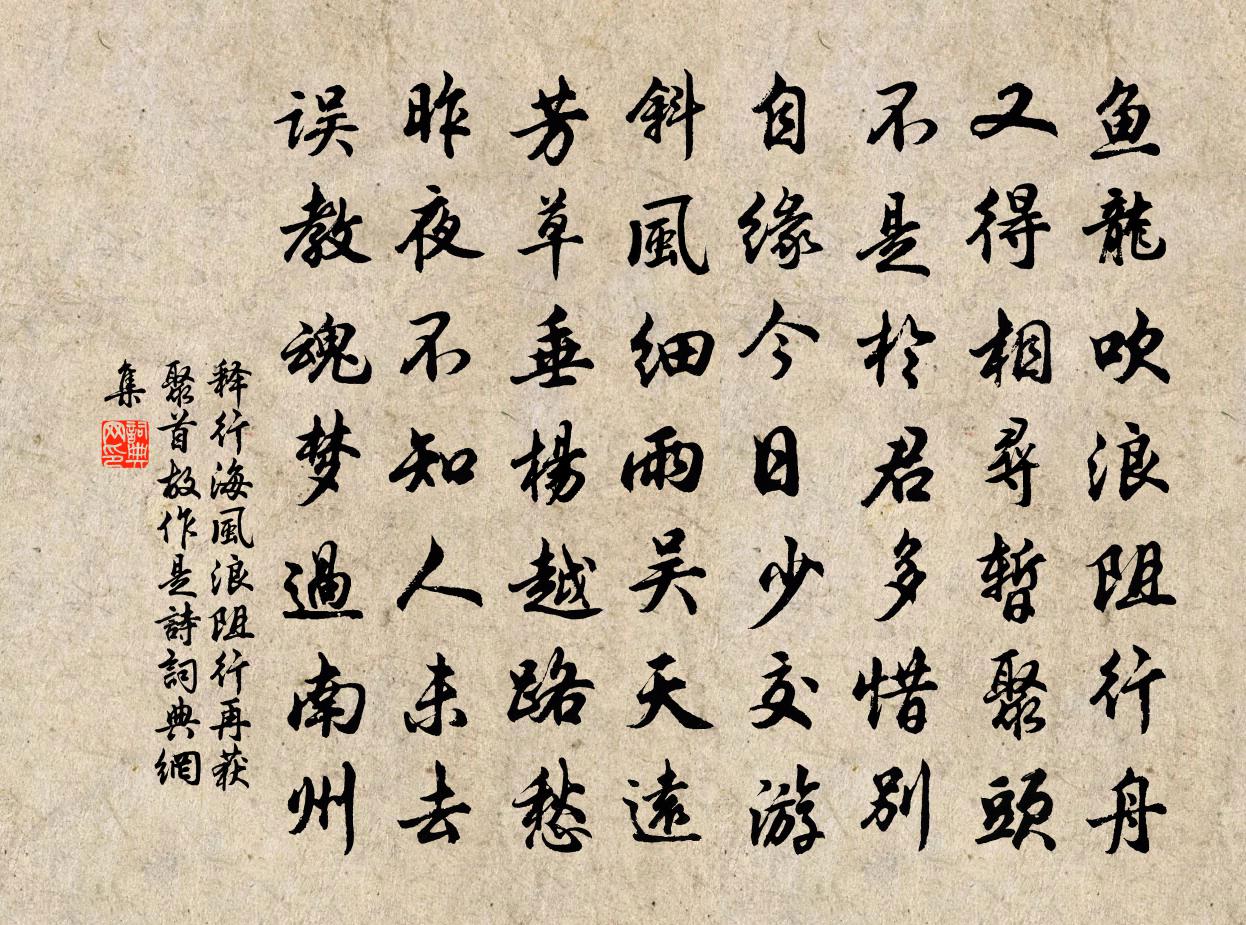 鱼龍吹浪阻行舟
又得相尋暫聚頭
不是於君多惜别
自缘今日少交游
斜風细雨吴天遠
芳草垂楊越路愁
昨夜不知人未去
误教魂梦過南州
释行海風浪阻行再获
聚首故作是詩詞典網
集
詞典网印